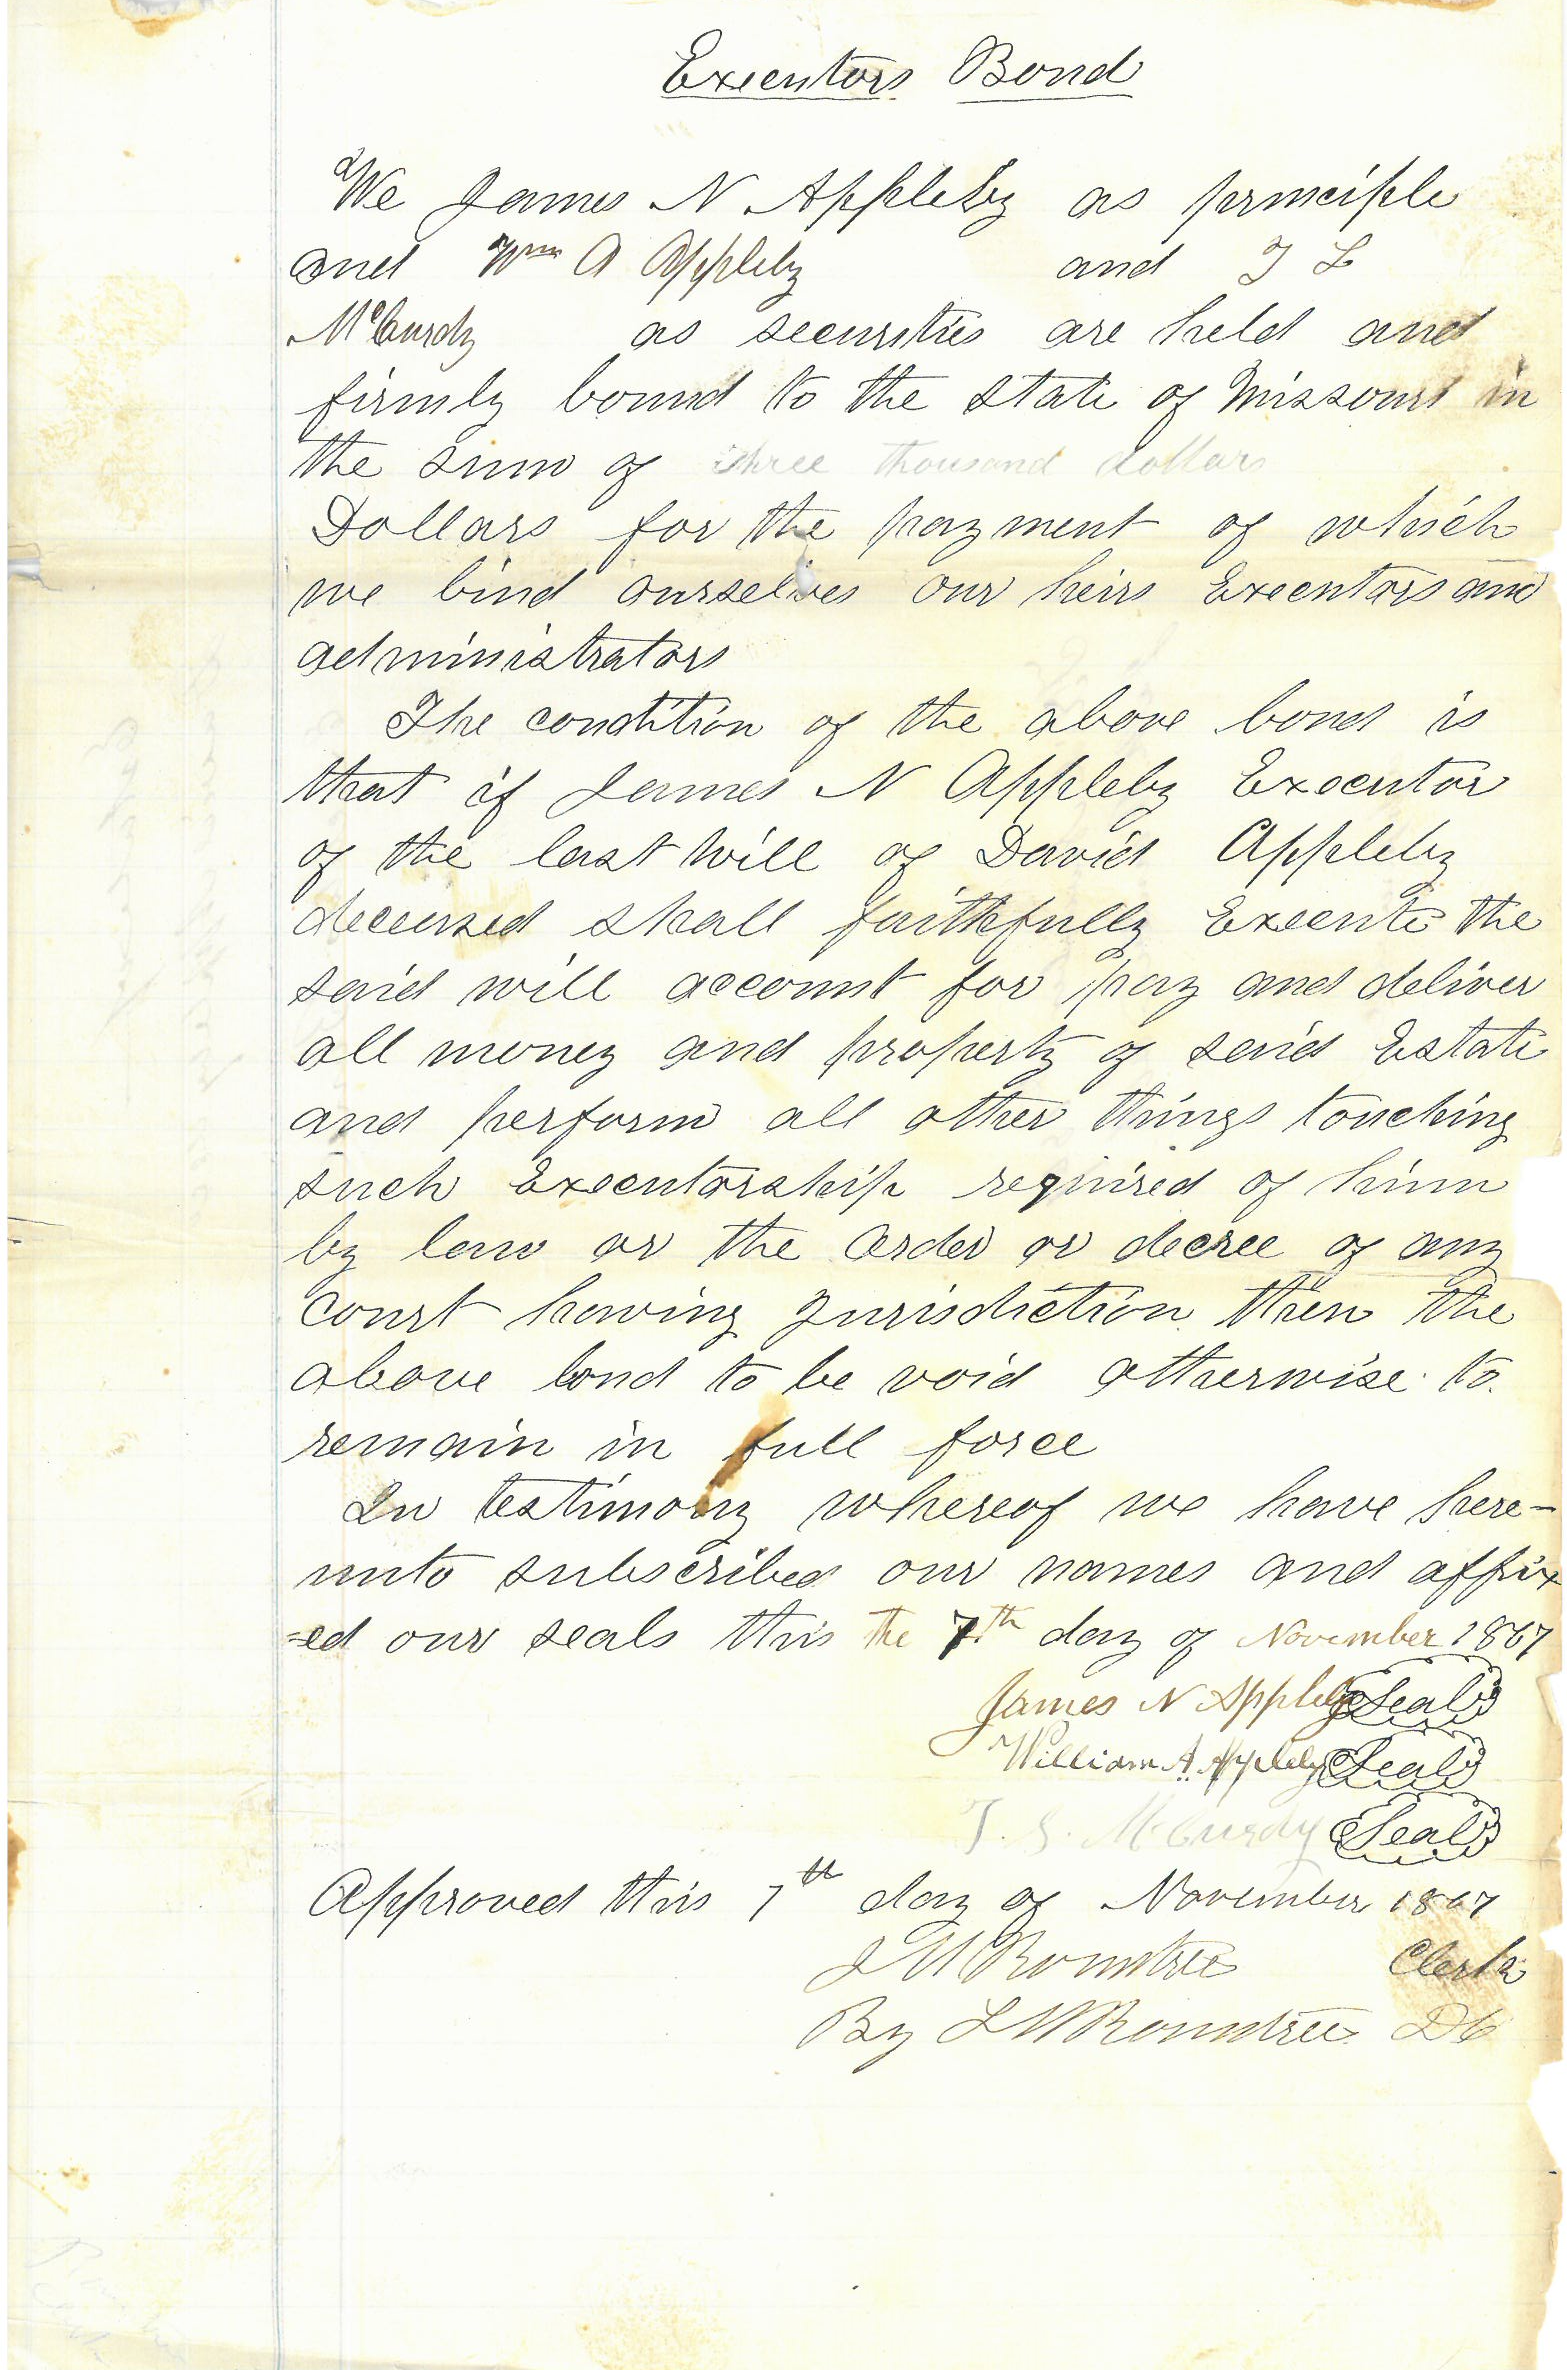 Executors Bond
We James N Appleby as principle
and Wm A Appleby and T L
McCurdy as securities are held and
firmly bound to the State of Missouri in
the sum of three thousand dollars
Dollars for the payment of which
we bind ourselves our heirs Executors and
administrators
The condition of the above bond is
that if James N Appleby Executor
of the last Will of David Appleby
deceased shall faithfully Execute the
said will account for pay and deliver
all money and property of said Estate
and perform all other things touching
such Executorship required of him
by law or the Order or decree of any
court having Jurisdiction then the
above bond to be void otherwise to
remain in full force
In testimony whereof we have here-
unto subscribed our names and affix
=ed our seals this the 7th day of November 1867
James N Appleby Seal
William A. Appleby Seal
T. McCurdy Seal
Approved this 7th day of November 1867
J W Rountree Clerk
By L W Rountree DC